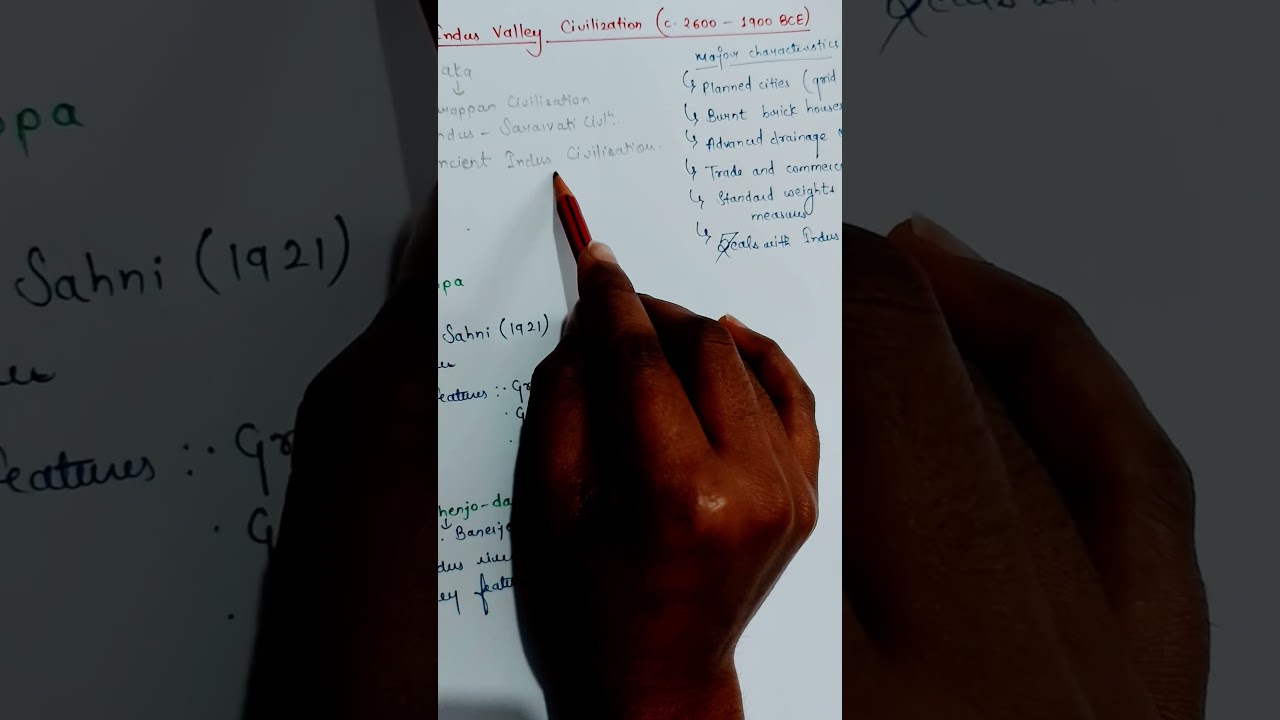 Indus Valley Civilization (c. 2600 – 1900 BCE)
aka
↓
rappan Civilization
ndus – Sarasvati Civlⁿ.
ncient Indus Civilisation.
Major characteristics
↳ Planned cities (grid
↳ Burnt brick house
↳ Advanced drainage
↳ Trade and commerce
↳ Standard weights
measures
↳ Seals with Indus
opa
Sahni (1921)
eatures :· Gr
· G
henjo-da
↓
· Banerje
dus rive
ey featu